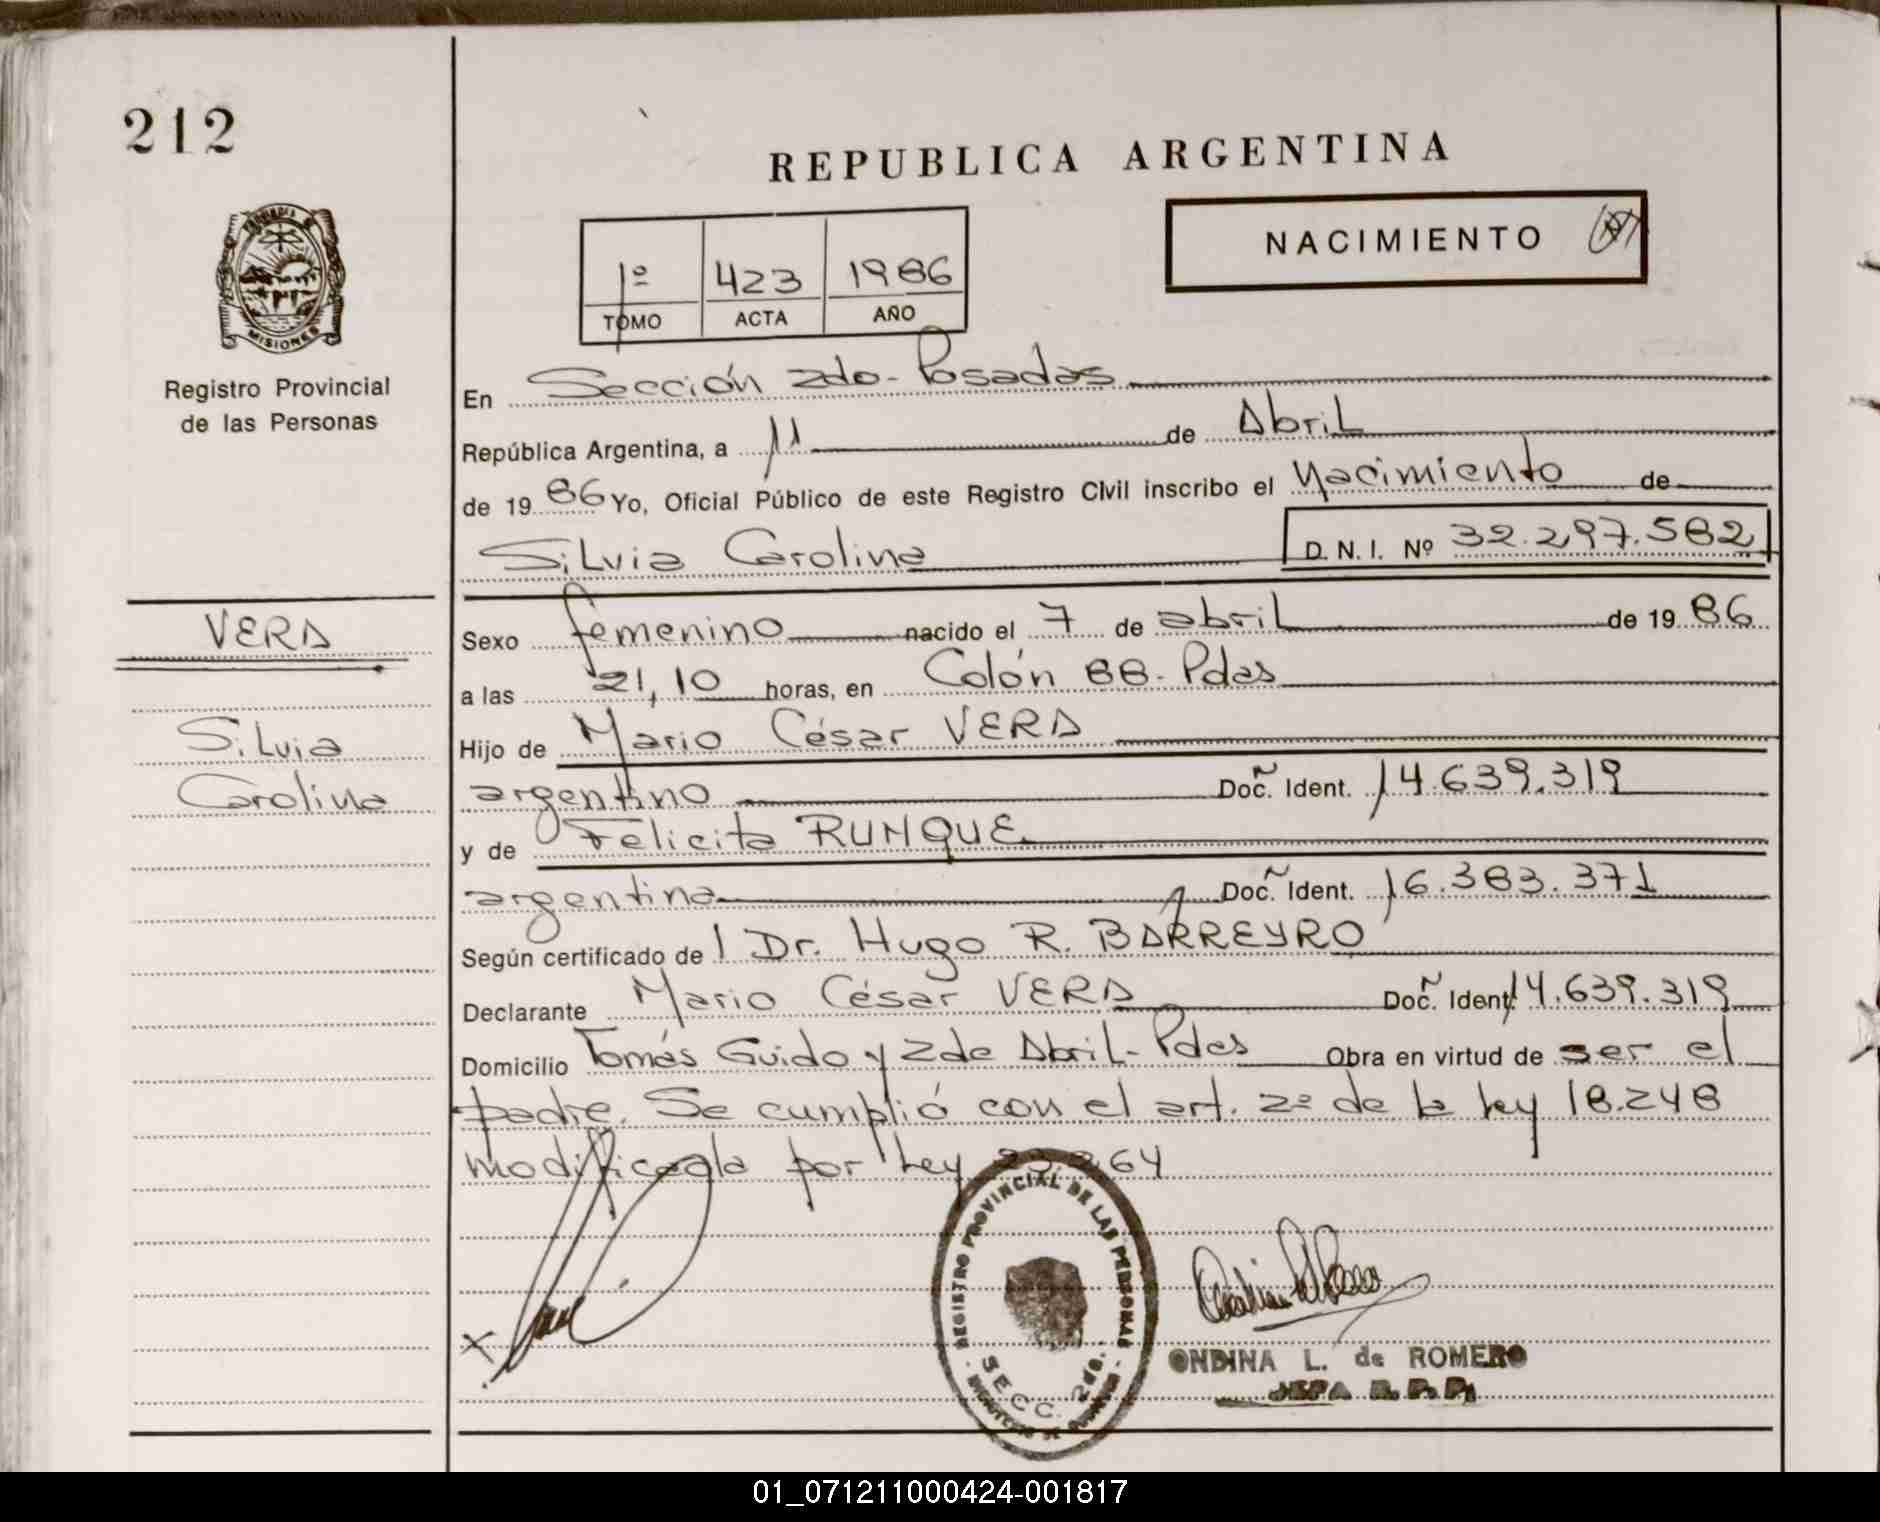 212
REPUBLICA ARGENTINA
NACIMIENTO
1º 423 1986
TOMO ACTA AÑO
PROVINCIA DE
MISIONES
Registro Provincial
de las Personas
En Sección 2do- Posadas
República Argentina, a 11 de Abril
de 1986 Yo, Oficial Público de este Registro Civil inscribo el Nacimiento de
Silvia Carolina D. N. I. Nº 32.297.582
VERA
Silvia
Carolina
Sexo femenino nacido el 7 de abril de 1986
a las 21,10 horas, en Colón 88- Pdas
Hijo de Mario César VERA
argentino Doc. Ident. 14.639.319
y de Felicita RUNQUE
argentina Doc. Ident. 16.383.371
Según certificado de 1 Dr. Hugo R. BARREYRO
Declarante Mario César VERA Doc. Ident. 14.639.319
Domicilio Tomás Guido y 2 de Abril- Pdas Obra en virtud de ser el
padre. Se cumplió con el art. 2º de la ley 18.248
modificada por Ley 64
REGISTRO PROVINCIAL DE LAS PERSONAS
SECC. 2da.
X
ONDINA L. de ROMERO
JEFA R. P. P.
01_071211000424-001817